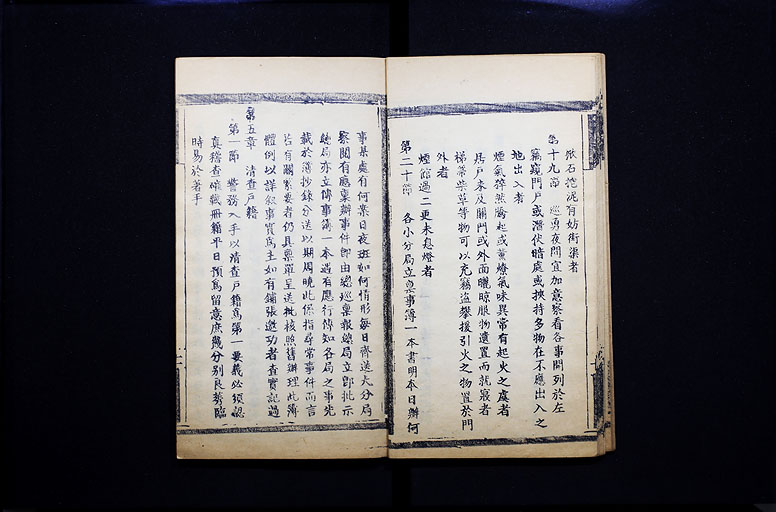 石挖泥有妨街渠者
第十九節 巡勇夜間宜加意察看各事開列於左
竊窺門戶或潛伏暗處或挾持多物在不應出入之
地出入者
煙氣猝然騰起或薰燎氣味異常有起火之虞者
居戶未及關門或外面曬晾服物遺置而就寢者
梯凳柴草等物可以充竊盜攀援引火之物置於門
外者
煙館過二更未息燈者
第二十節 各小分局立稟事簿一本書明本日辦何
事某處有何案日夜班如何情形每日齊送大分局
察閱有應稟辦事件即由總巡稟報總局立即批示
總局亦立傳事簿一本遇有應行傳知各局之事先
載於簿抄錄分送以期周曉此係指尋常事件而言
若有關緊要者仍具稟單呈送批核照舊辦理此簿
體例以詳敘事實為主如有鋪張邀功者查實記過
第五章 清查戶籍
第一節 警務入手以清查戶籍為第一要義必須認
真稽查編載冊籍平日預為留意庶幾分別良莠臨
時易於著手